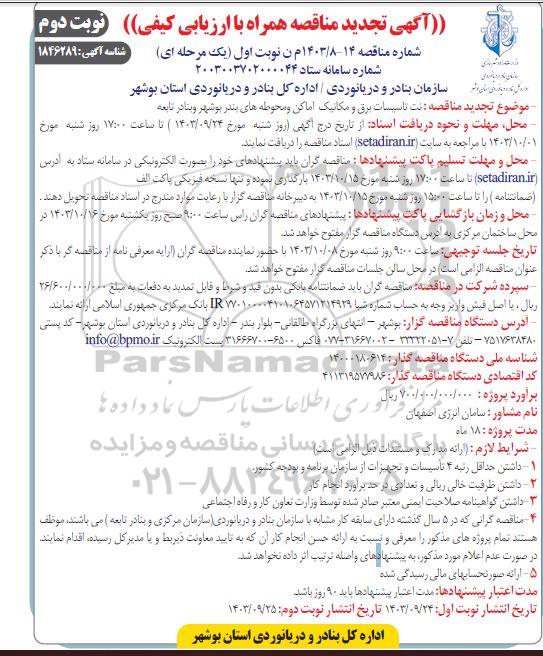 نوبت دوم
((آگهی تجدید مناقصه همراه با ارزیابی کیفی))
شناسه آگهی: ۱۸۴۶۲۸۹
شماره مناقصه ۱۴-۱۴۰۳/۸م ن نوبت اول (یک مرحله ای)
شماره سامانه ستاد ۲۰۰۳۰۰۳۷۰۲۰۰۰۰۴۴
سازمان بنادر و دریانوردی / اداره کل بنادر و دریانوردی استان بوشهر
– موضوع تجدید مناقصه: نت تاسیسات برق و مکانیک اماکن ومحوطه های بندر بوشهر وبنادر تابعه
– محل، مهلت و نحوه دریافت اسناد: از تاریخ درج آگهی (روز شنبه مورخ ۱۴۰۳/۰۹/۲۴ ) تا ساعت ۱۷:۰۰ روز شنبه مورخ
۱۴۰۳/۱۰/۰۱ با مراجعه به سایت (setadiran.ir) اسناد مناقصه را دریافت نمایند.
– محل و مهلت تسلیم پاکت پیشنهادها : مناقصه گران باید پیشنهادهای خود را بصورت الکترونیکی در سامانه ستاد به آدرس
(setadiran.ir) تا ساعت ۱۷:۰۰ روز شنبه مورخ ۱۴۰۳/۱۰/۱۵ بارگذاری نموده و تنها نسخه فیزیکی پاکت الف
(ضمانتنامه ) را تا ساعت ۱۵:۰۰ روز شنبه مورخ ۱۴۰۳/۱۰/۱۵ به دبیرخانه مناقصه گزار با رعایت موارد مندرج در اسناد مناقصه تحویل دهند .
– محل و زمان بازگشایی پاکت پیشنهادها: پیشنهادهای مناقصه گران راس ساعت ۹:۰۰ صبح روز یکشنبه مورخ ۱۴۰۳/۱۰/۱۶ در
محل ساختمان مرکزی به آدرس دستگاه مناقصه گزار مفتوح خواهد شد.
تاریخ جلسه توجیهی: ساعت ۹:۰۰ روز شنبه مورخ ۱۴۰۳/۱۰/۰۸ با حضور نماینده مناقصه گران (ارایه معرفی نامه از مناقصه گر با ذکر
عنوان مناقصه الزامی است) در محل سالن جلسات مناقصه گزار مفتوح خواهد شد.
– سپرده شرکت در مناقصه: مناقصه گران باید ضمانتنامه بانکی بدون قید و شرط و قابل تمدید به دفعات به مبلغ ۲۶/۶۰۰/۰۰۰/۰۰۰
ریال ، یا اصل فیش واریز وجه به حساب شماره شبا IR ۷۷۰۱۰۰۰۰۴۱۰۱۰۶۴۵۷۱۲۱۴۹۲۹ بانک مرکزی جمهوری اسلامی ارائه نمایند.
– آدرس دستگاه مناقصه گزار: بوشهر – انتهای بزرگراه طالقانی- بلوار بندر – اداره کل بنادر و دریانوردی استان بوشهر- کد پستی
۷۵۱۷۶۳۸۴۸۰ – تلفن ۷-۳۳۳۲۲۰۵۱ – ۳۱۶۶۷۰۰۲-۰۷۷ فاکس ۶۵۰۰-۳۱۶۶۶۷۰۰ پست الکترونیک info@bpmo.ir
شناسه ملی دستگاه مناقصه گذار: ۱۴۰۰۰۱۸۰۶۱۴
کد اقتصادی دستگاه مناقصه گذار: ۴۱۱۳۱۹۵۷۷۹۸۶
برآورد پروژه : ۷۰۰/۰۰۰/۰۰۰/۰۰۰ ریال
نام مشاور: سامان انرژی اصفهان
مدت پروژه: ۱۸ ماه
– شرایط لازم : (ارائه مدارک و مستندات ذیل الزامی است)
۱– داشتن حداقل رتبه ۴ تاسیسات و تجهیزات از سازمان برنامه و بودجه کشور.
۲– داشتن ظرفیت خالی ریالی و تعدادی در حد برآورد انجام کار
۳– داشتن گواهینامه صلاحیت ایمنی معتبر صادر شده توسط وزارت تعاون کار و رفاه اجتماعی
۴–مناقصه گرانی که در ۵ سال گذشته دارای سابقه کار مشابه با سازمان بنادر و دریانوردی(سازمان مرکزی و بنادر تابعه ) می باشند، موظف
هستند تمام پروژه های مذکور را معرفی و نسبت به ارائه حسن انجام کار آن که به تایید معاونت ذیربط و یا مدیرکل رسیده، اقدام نمایند.
در صورت عدم اعلام مورد مذکور، به پیشنهادهای واصله ترتیب اثر داده نخواهد شد.
۵– ارائه صورتحسابهای مالی رسیدگی شده
مدت اعتبار پیشنهادها: مدت اعتبار پیشنهادها باید ۹۰ روز باشد.
تاریخ انتشار نوبت اول: ۱۴۰۳/۰۹/۲۴ تاریخ انتشار نوبت دوم: ۱۴۰۳/۰۹/۲۵
اداره کل بنادر و دریانوردی استان بوشهر
ParsNamadData
۰۲۱-۸۸۳۴۹۶۷۰-۵